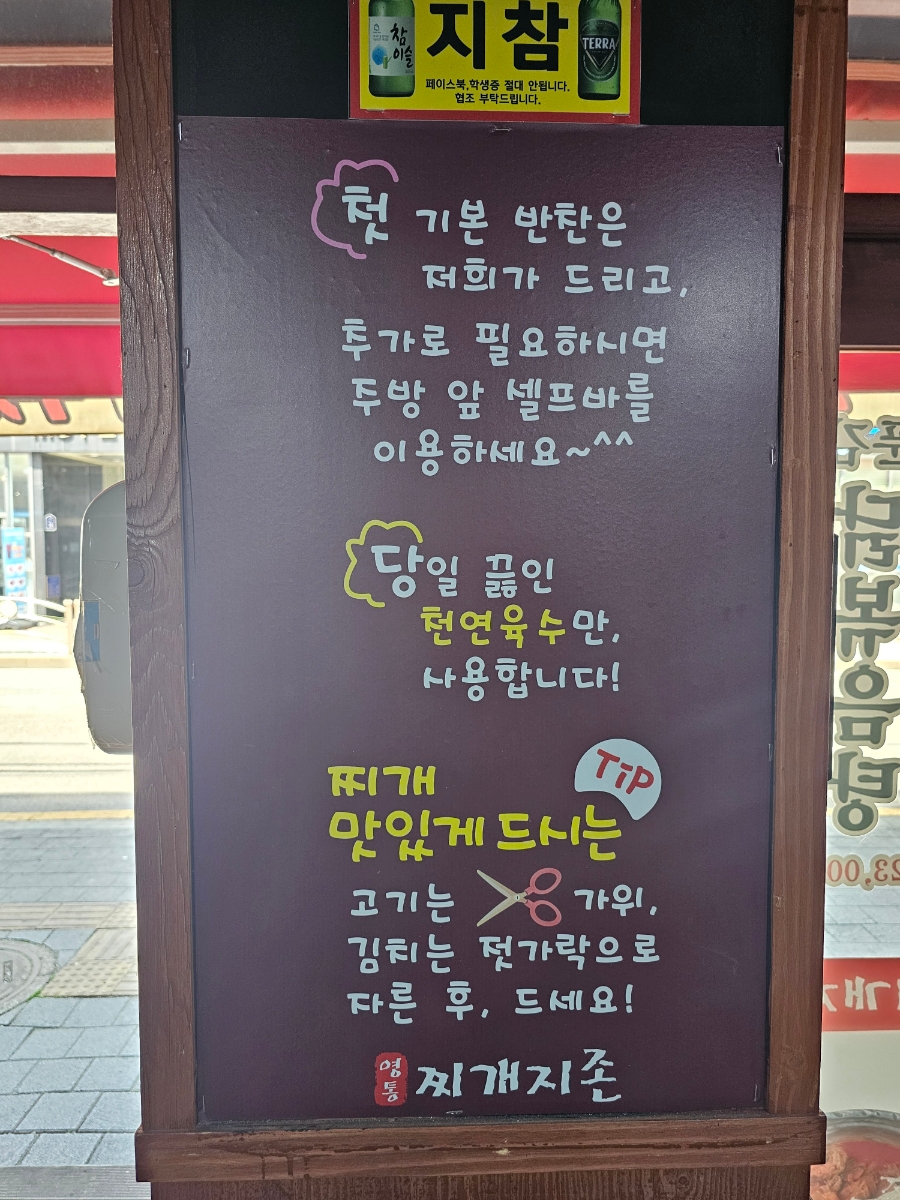 지참
참이슬
TERRA
페이스북,학생증 절대 안됩니다.
협조 부탁드립니다.
첫 기본 반찬은
저희가 드리고,
추가로 필요하시면
주방 앞 셀프바를
이용하세요~^^
당일 끓인
천연육수만,
사용합니다!
찌개
TiP
맛있게 드시는
고기는 가위,
김치는 젓가락으로
자른 후, 드세요!
영통 찌개지존